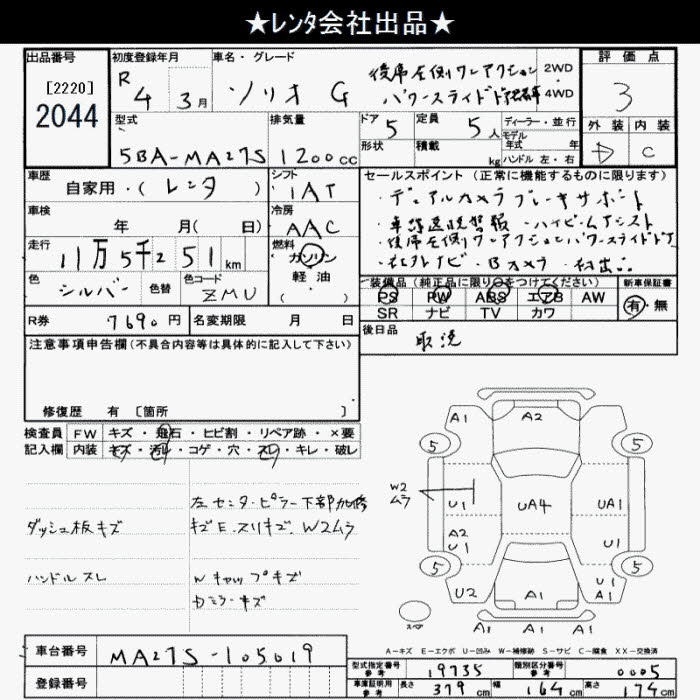 ★レンタ会社出品★
出品番号
[2220]
2044
初度登録年月
R 4年 3月
車名・グレード
ソリオ G
後席左側ワンアクション
パワースライドドア装着車
2WD
4WD
評価点
3
外装 内装
D C
型式
5BA-MA27S
排気量
1200cc
ドア
5
形状
定員
5人
積載
kg
ディーラー・並行
モデル
年式 年
ハンドル 左・右
車歴
自家用・(レンタ)
シフト
IAT
車検
年 月(日)
冷房
AAC
走行
11万5千251km
燃料
ガソリン
軽油
( )
色
シルバー
色替
色コード
ZMU
セールスポイント (正常に機能するものに限ります)
・デュアルカメラブレーキサポート
・車線逸脱警報 ・ハイビームアシスト
・後席左側ワンアクションパワースライドドア
・社外ナビ・Bカメラ
装備品(純正品に限り○をつけてください)
PS PW ABS エアB AW
SR ナビ TV カワ
新車保証書
有・無
R券
7690円
名変期限 月 日
後日品
取説
注意事項申告欄(不具合内容等は具体的に記入して下さい)
修復歴 有 〔箇所 〕
検査員
記入欄
FW キズ・飛石・ヒビ割・リペア跡・×要
内装 キズ・汚レ・コゲ・穴・スレ・キレ・破レ
左センターピラー下部加修
ダッシュ板キズ
キズE、スリキズ、W2ムラ
ハンドルスレ
Wキャップキズ
Dミラーキズ
A1 A2 A1
5 5
W2
ムラ
U1 UA4 UA1
A2
U1
U1
5 5
U2 A1 U1
A1
スペア
A1 A1 A1
A-キズ E-エクボ U-凹み W-補修跡 S-サビ C-腐食 XX-交換済
車台番号
MA27S-105019
登録番号
型式指定番号
参考
19735
類別区分番号
参考
0005
車庫証明用
参考
長さ
379cm
幅
164cm
高さ
174cm